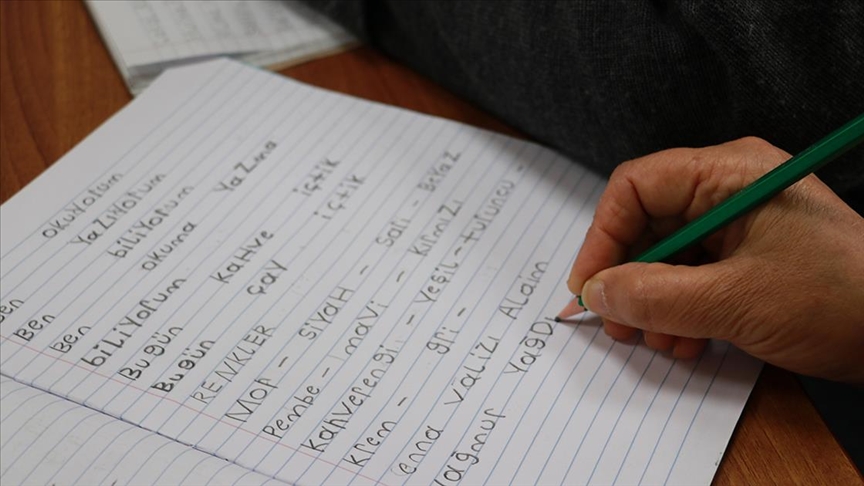 Ben okuyorum
Ben yazıyorum
Ben biliyorum
biliyorum okuma yazma
Bugün kahve içtik
Bugün çay içtik
RENKLER
Mor - siyah - sarı - Beyaz
Pembe - mavi - kırmızı
kahverengi - yeşil - turuncu -
krem - gri -
valizi Alaım
yağmur yağDı